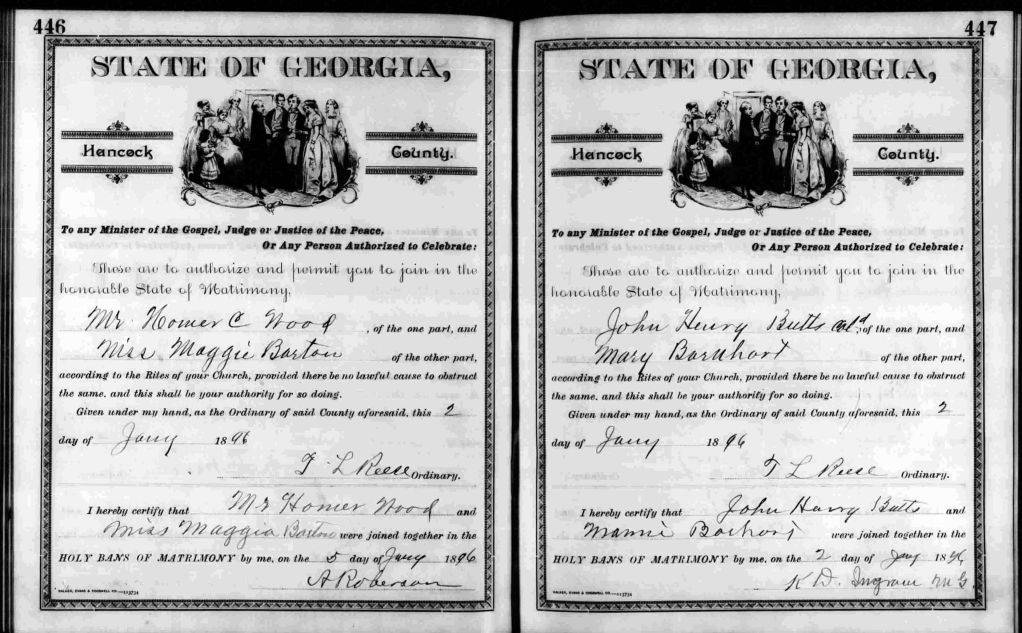 446
STATE OF GEORGIA,
Hancock County.
To any Minister of the Gospel, Judge or Justice of the Peace,
Or Any Person Authorized to Celebrate:
These are to authorize and permit you to join in the
honorable State of Matrimony,
Mr. Homer C Wood, of the one part, and
Miss Maggie Barton of the other part,
according to the Rites of your Church, provided there be no lawful cause to obstruct
the same, and this shall be your authority for so doing.
Given under my hand, as the Ordinary of said County aforesaid, this 2
day of Jany 1896
T L Reese Ordinary.
I hereby certify that Mr Homer Wood and
Miss Maggie Barton were joined together in the
HOLY BANS OF MATRIMONY by me, on the 5 day of Jany 1896
A Roberson
447
STATE OF GEORGIA,
Hancock County.
To any Minister of the Gospel, Judge or Justice of the Peace,
Or Any Person Authorized to Celebrate:
These are to authorize and permit you to join in the
honorable State of Matrimony,
John Henry Butts Cold, of the one part, and
Mary Barnhart of the other part,
according to the Rites of your Church, provided there be no lawful cause to obstruct
the same, and this shall be your authority for so doing.
Given under my hand, as the Ordinary of said County aforesaid, this 2
day of Jany 1896
T L Reese Ordinary.
I hereby certify that John Harry Butts and
Mamie were joined together in the
HOLY BANS OF MATRIMONY by me, on the 2 day of Jany 1896
K D. Ingram M G.